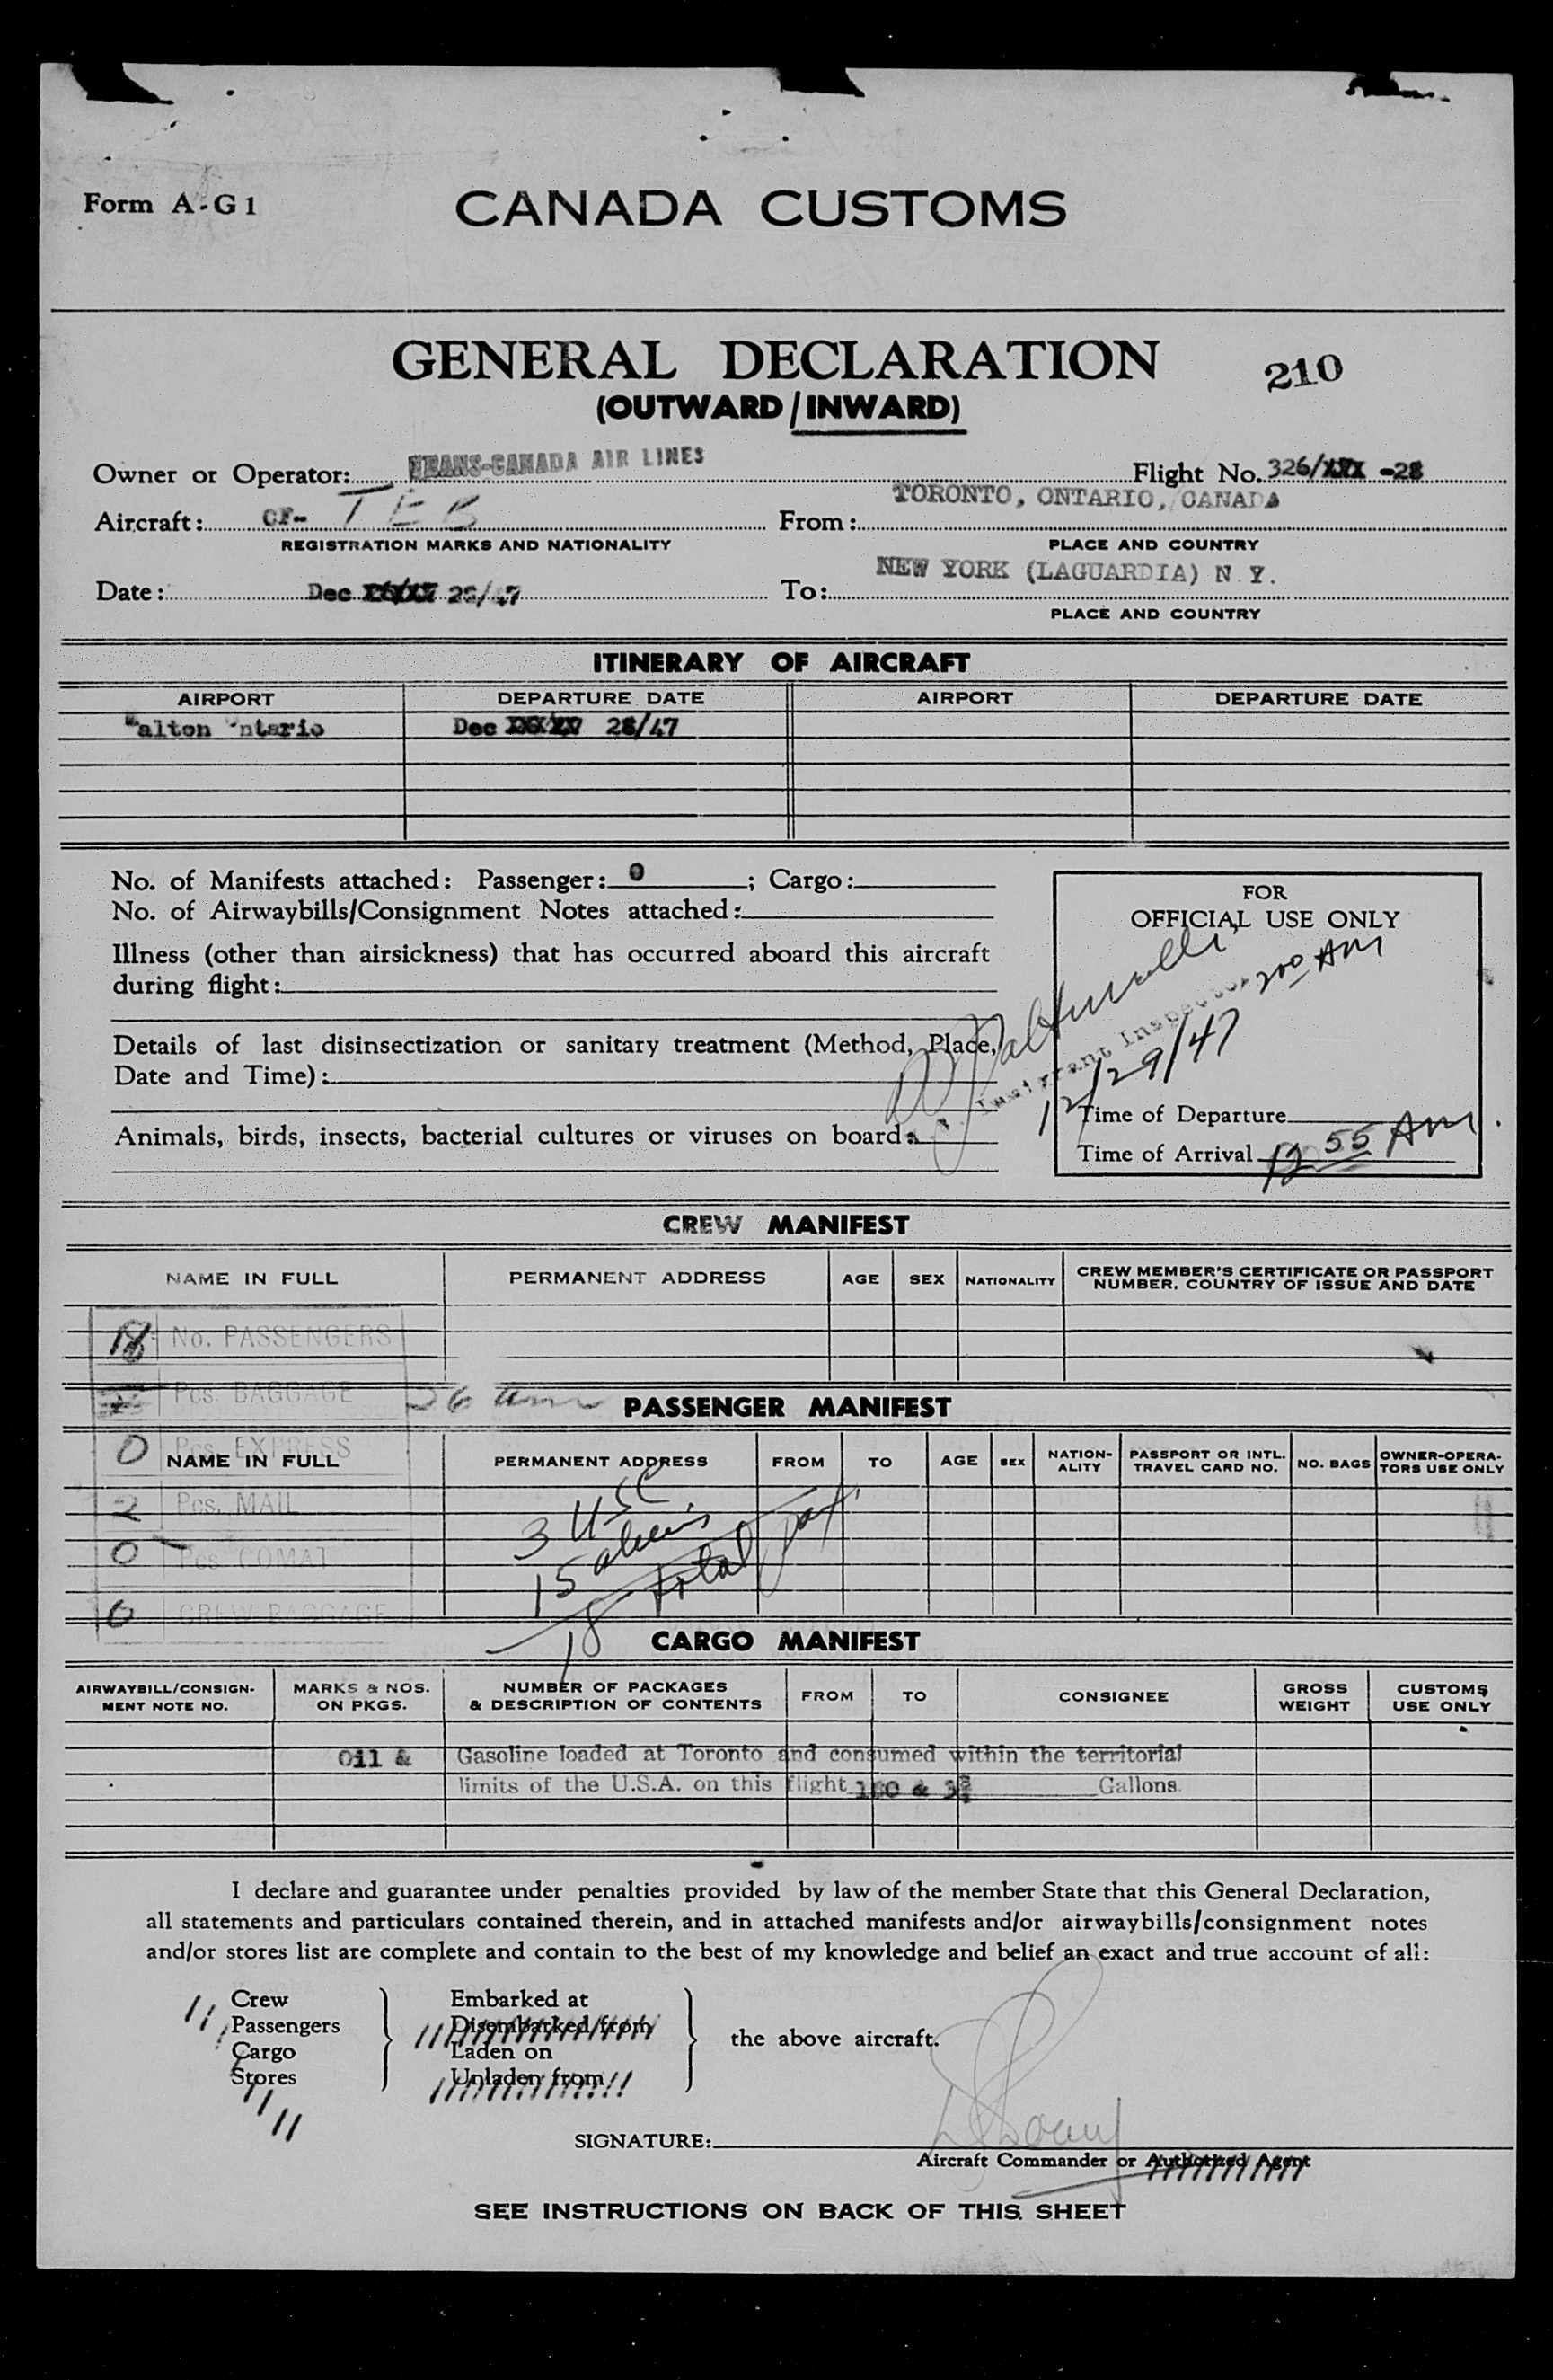 Form A-G1
CANADA CUSTOMS
GENERAL DECLARATION
210
(OUTWARD/INWARD)
Owner or Operator: TRANS-CANADA AIR LINES
Flight No. 326/XXX -28
Aircraft: CF- TEB
From: TORONTO, ONTARIO, CANADA
REGISTRATION MARKS AND NATIONALITY
PLACE AND COUNTRY
Date: Dec 28/47
To: NEW YORK (LAGUARDIA) N.Y.
PLACE AND COUNTRY
ITINERARY OF AIRCRAFT
AIRPORT DEPARTURE DATE AIRPORT DEPARTURE DATE
Malton Ontario Dec 28/47
No. of Manifests attached: Passenger: 0 ; Cargo:
No. of Airwaybills/Consignment Notes attached:
Illness (other than airsickness) that has occurred aboard this aircraft
during flight:
Details of last disinsectization or sanitary treatment (Method, Place,
Date and Time):
Animals, birds, insects, bacterial cultures or viruses on board:
FOR
OFFICIAL USE ONLY
200 AM
Immigrant Inspector
12/29/47
Time of Departure
Time of Arrival 12 55 AM.
CREW MANIFEST
NAME IN FULL PERMANENT ADDRESS AGE SEX NATIONALITY CREW MEMBER'S CERTIFICATE OR PASSPORT
NUMBER, COUNTRY OF ISSUE AND DATE
18 No. PASSENGERS
Pcs. BAGGAGE 26
PASSENGER MANIFEST
0 Pcs. EXPRESS
NAME IN FULL PERMANENT ADDRESS FROM TO AGE SEX NATION-
ALITY PASSPORT OR INTL.
TRAVEL CARD NO. NO. BAGS OWNER-OPERA-
TORS USE ONLY
2 Pcs. MAIL
3 USC
0 Pcs COMAT
15 aliens
0 CREW BAGGAGE
18 total pax
CARGO MANIFEST
AIRWAYBILL/CONSIGN-
MENT NOTE NO. MARKS & NOS.
ON PKGS. NUMBER OF PACKAGES
& DESCRIPTION OF CONTENTS FROM TO CONSIGNEE GROSS
WEIGHT CUSTOMS
USE ONLY
Oil & Gasoline loaded at Toronto and consumed within the territorial
limits of the U.S.A. on this flight Gallons.
I declare and guarantee under penalties provided by law of the member State that this General Declaration,
all statements and particulars contained therein, and in attached manifests and/or airwaybills/consignment notes
and/or stores list are complete and contain to the best of my knowledge and belief an exact and true account of all:
Crew Embarked at
Passengers Disembarked from
the above aircraft.
Cargo Laden on
Stores Unladen from
SIGNATURE:
Aircraft Commander or Authorized Agent
SEE INSTRUCTIONS ON BACK OF THIS SHEET